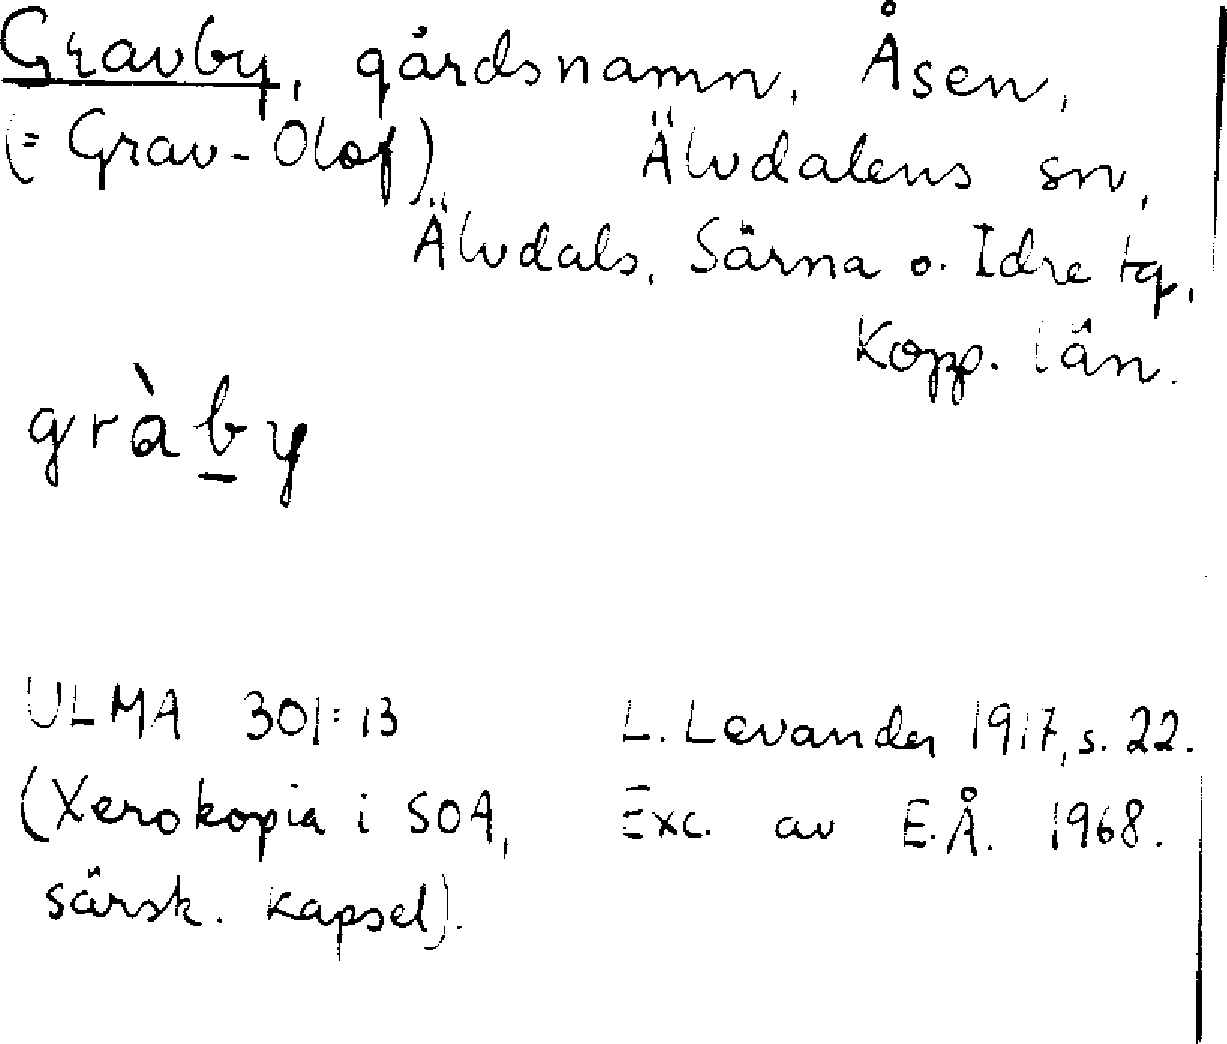 Gravby, gårdsnamn, Åsen,
(= Grav-Olof) Älvdalens sn,
Älvdals, Särna o. Idre tg,
Kopp. län.
gràb̲y
ULMA 301:13 L. Levander 1917, s. 22.
(Xerokopia i SOA, Exc. av E.Å. 1968.
särsk. kapsel).